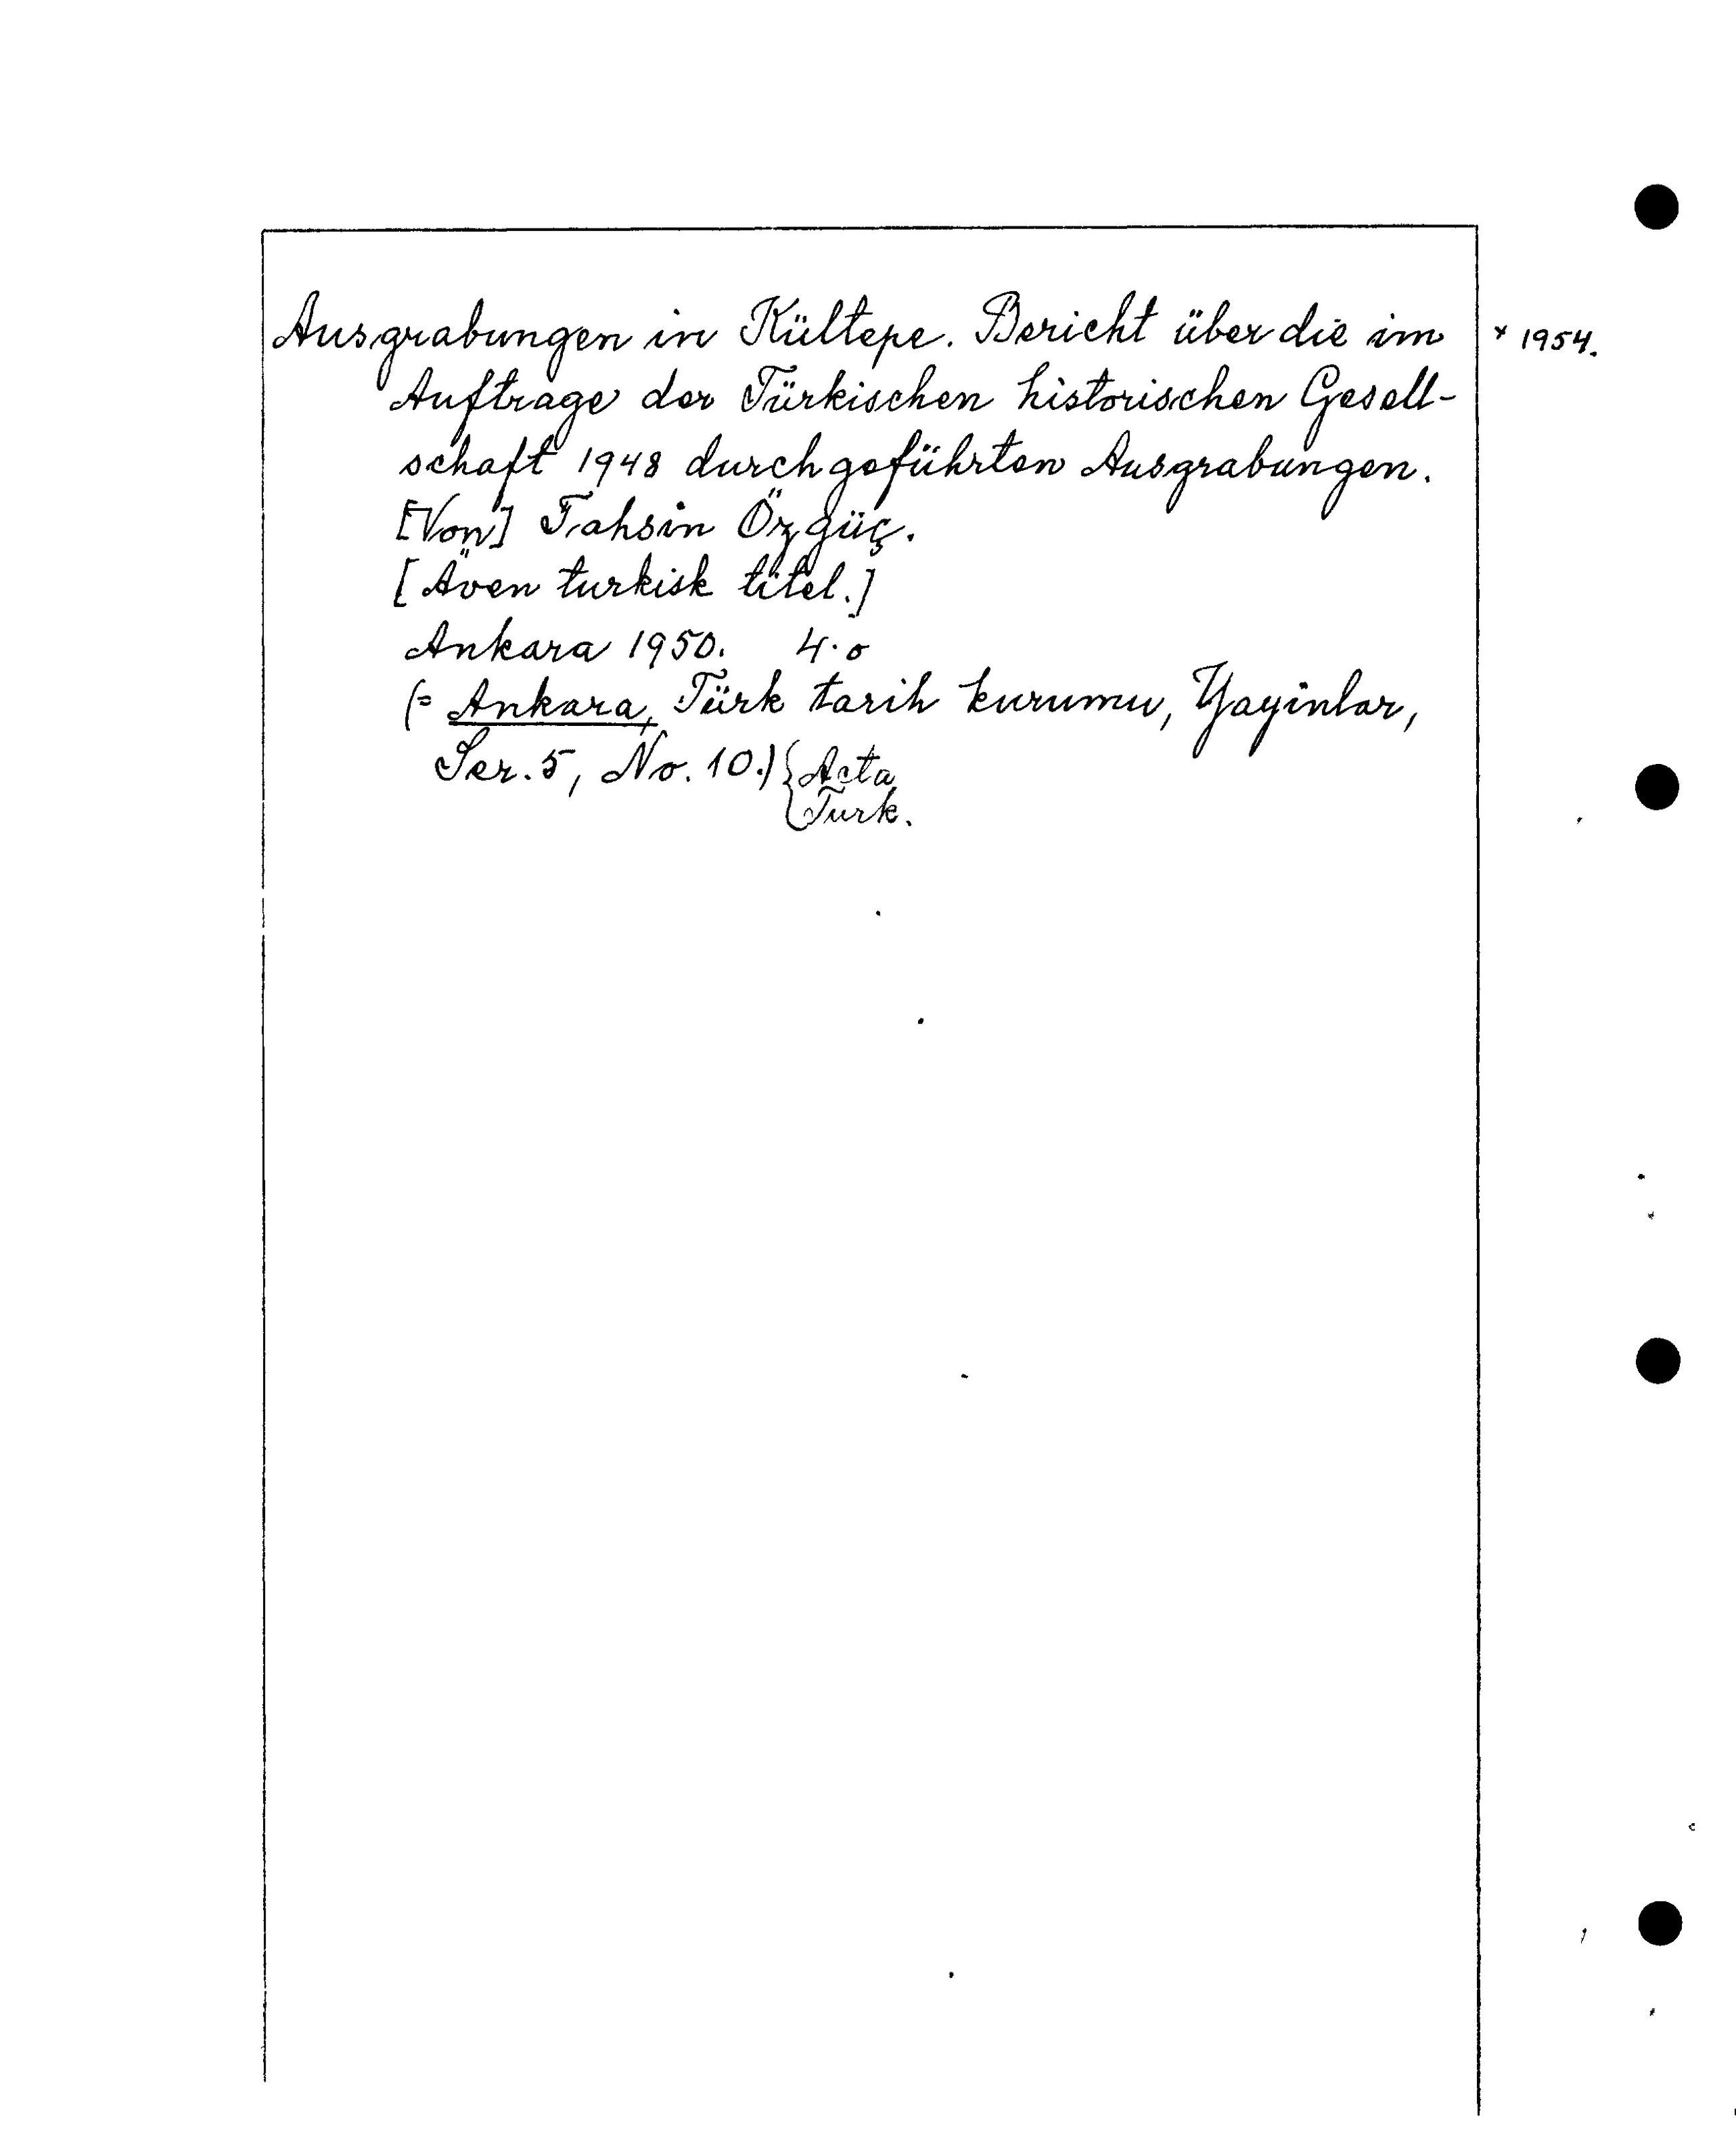 Ausgrabungen in Kültepe. Bericht über die im
* 1954.
Auftrage der Türkischen historischen Gesell-
schaft 1948 durchgeführten Ausgrabungen.
[Von] Tahsin Özgüç.
[Även turkisk titel.]
Ankara 1950. 4:o
(= Ankara, Türk tarih kurumu, Yayinlar,
Ser. 5, No. 10.) {Acta
Turk.